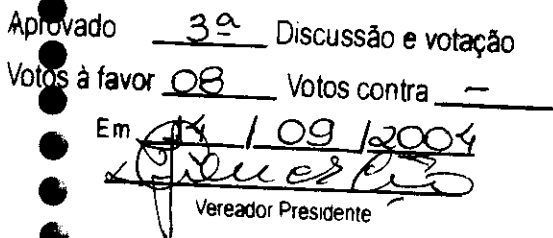 Aprovado 3ª Discussão e votação
Votos à favor 08 Votos contra -
Em 14 / 09 / 2004
Vereador Presidente